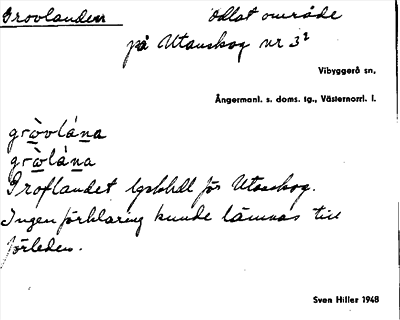 Grovlanden
odlat område
på Utanskog nr 3²
Vibyggerå sn,
Ångermanl. s. doms. tg., Västernorrl. l.
gròvlána
gròlána
Groflandet lgskhdl för Utanskog.
Ingen förklaring kunde lämnas till
förleden.
Sven Hiller 1948